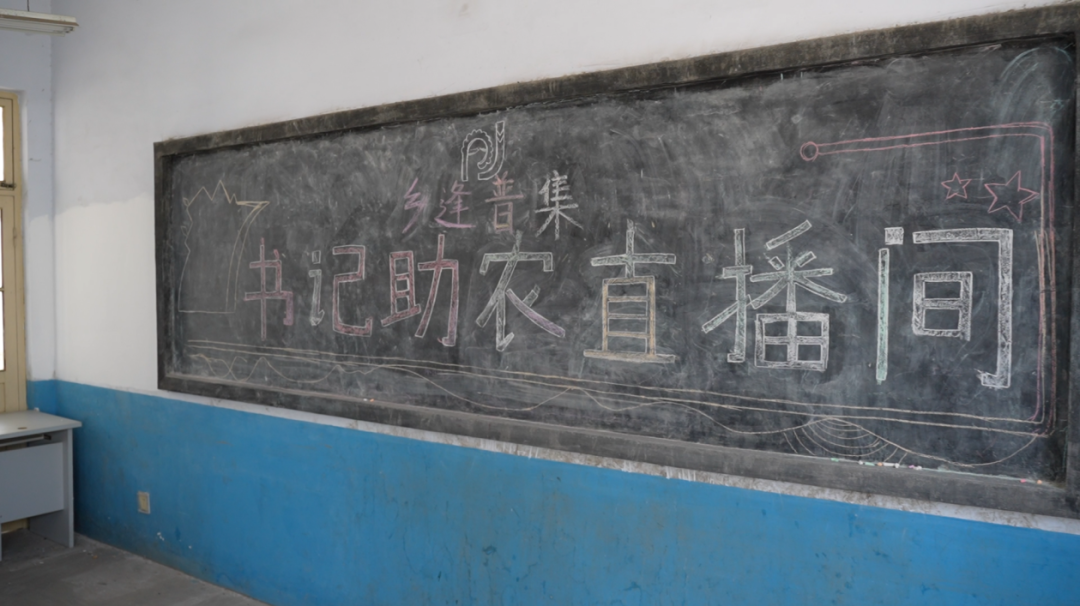 PJ
乡逢普集
书记助农直播间